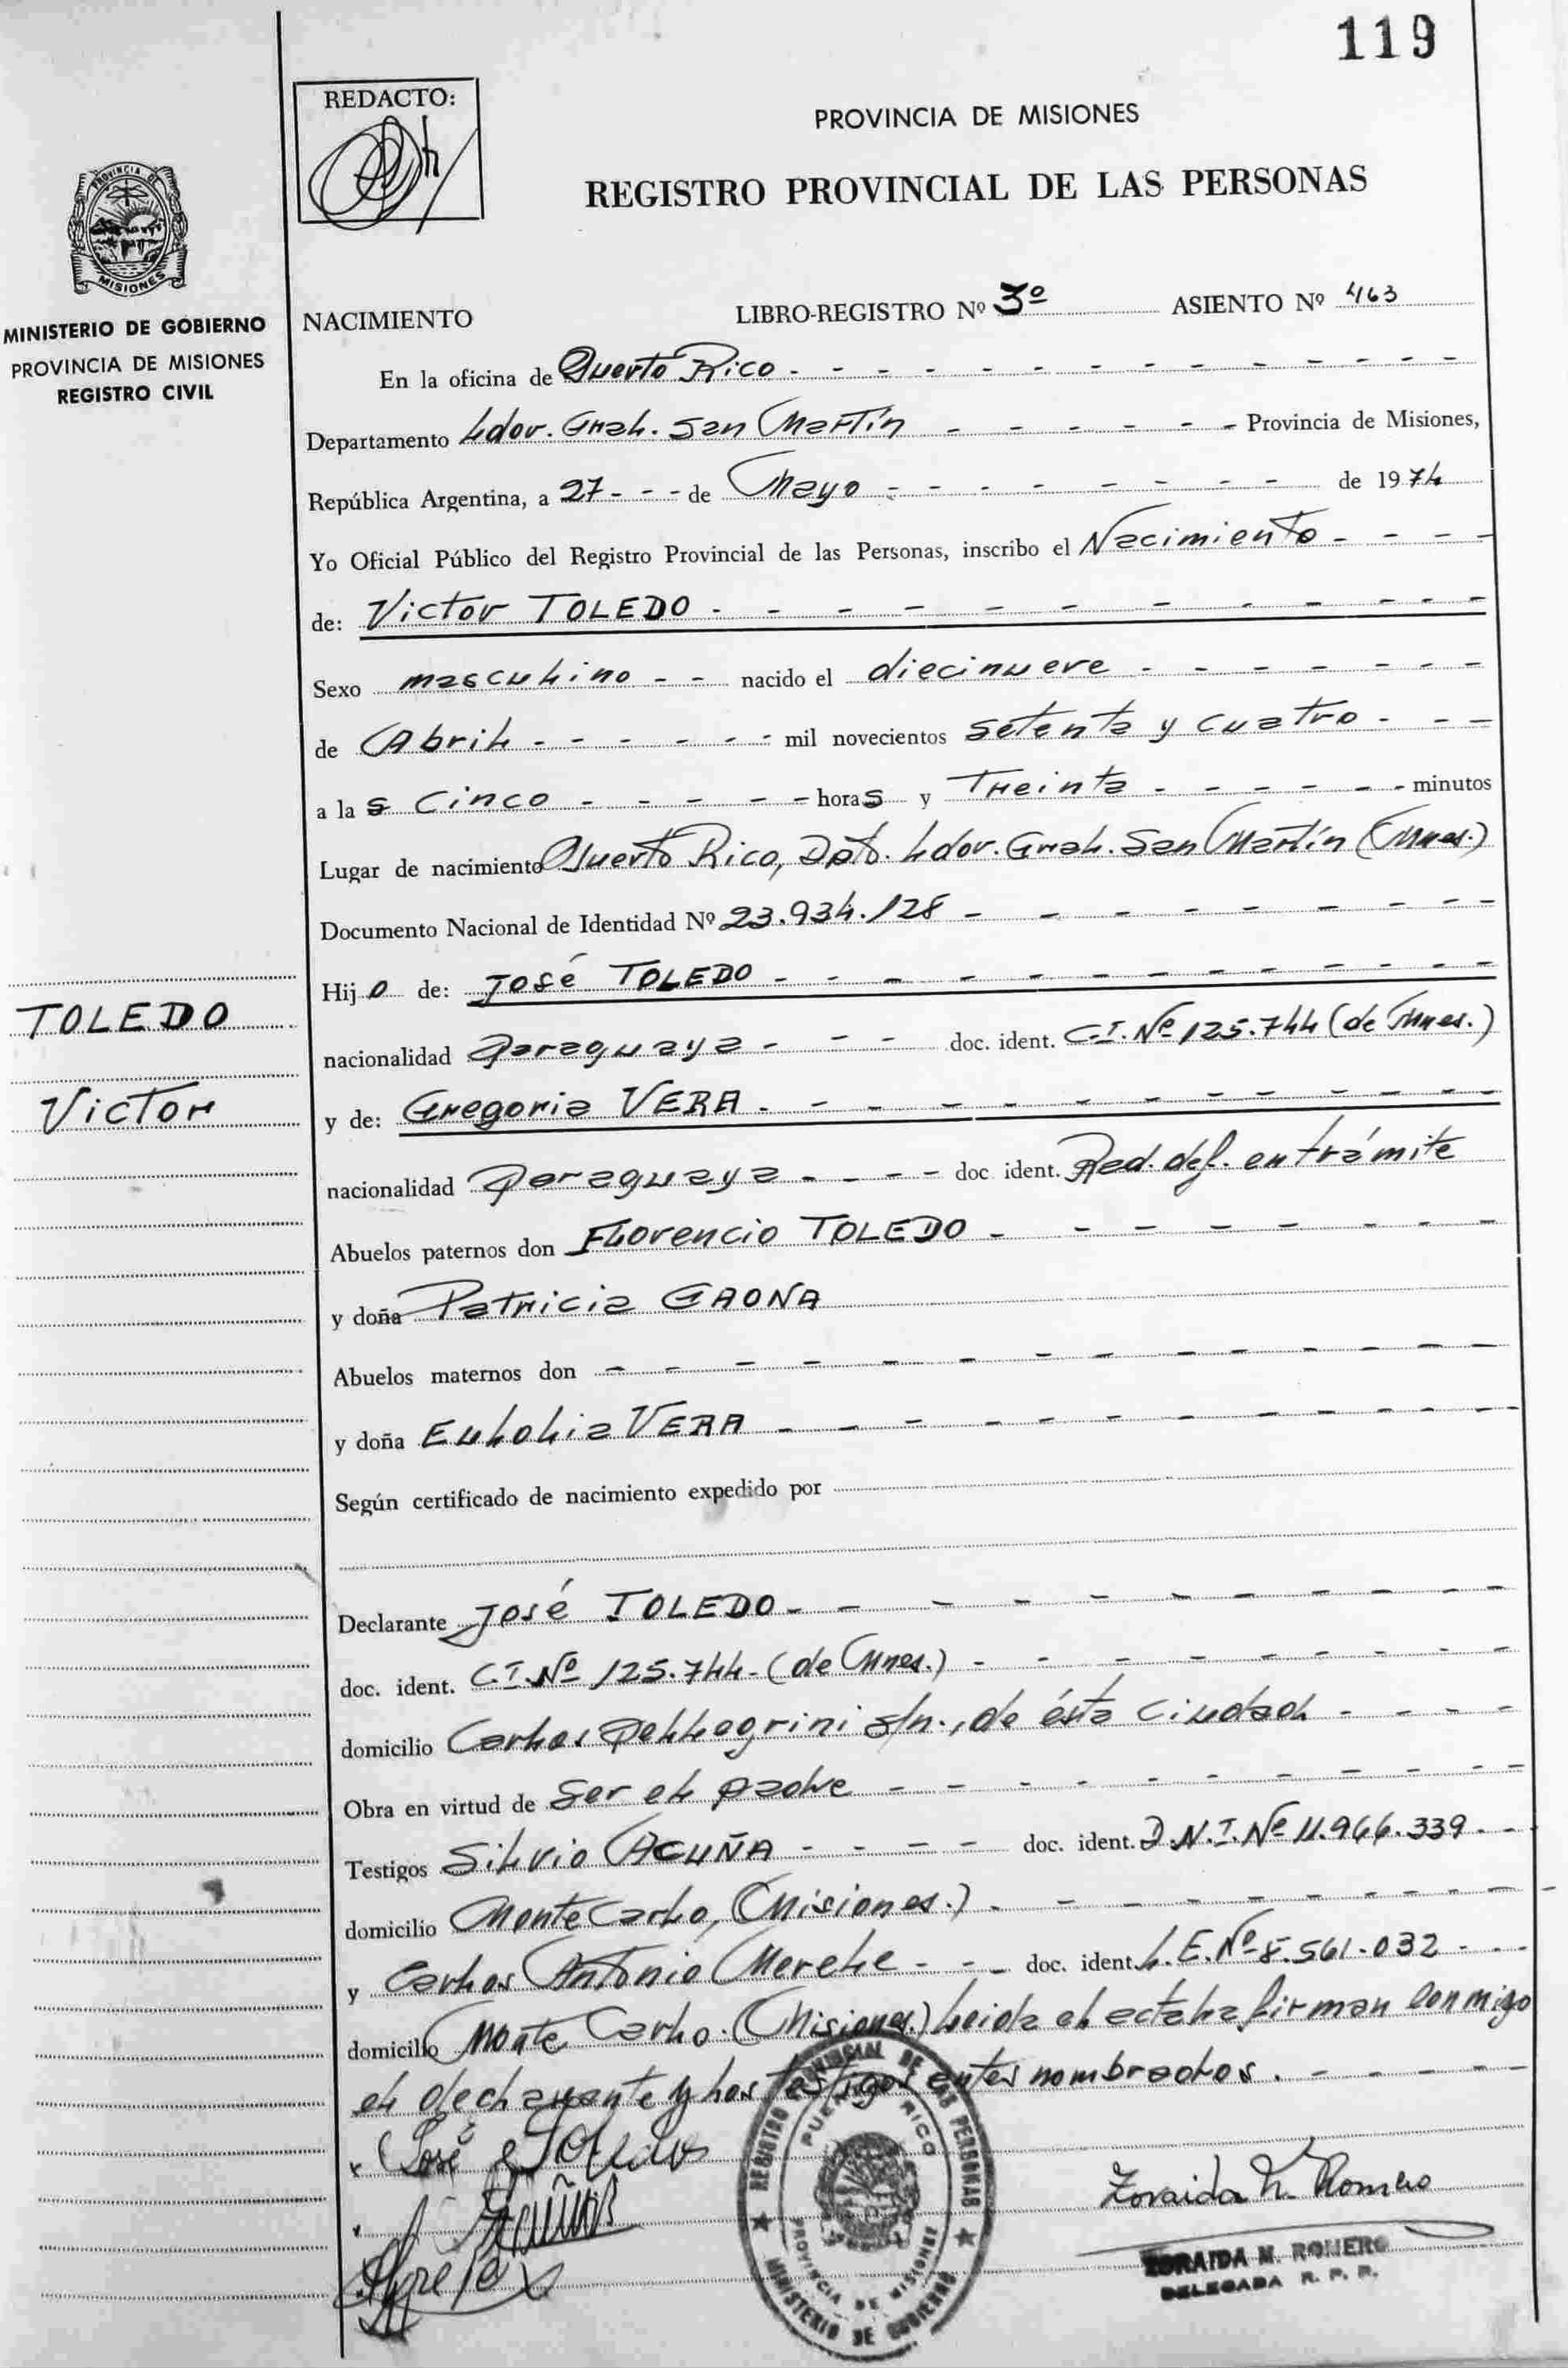 119
REDACTO:
PROVINCIA DE MISIONES
REGISTRO PROVINCIAL DE LAS PERSONAS
PROVINCIA DE
MISIONES
MINISTERIO DE GOBIERNO
PROVINCIA DE MISIONES
REGISTRO CIVIL
NACIMIENTO LIBRO-REGISTRO Nº 3º ASIENTO Nº 463
En la oficina de Puerto Rico - - - - - - - - - - - - -
Departamento Ldor. Gral. San Martín - - - - - - Provincia de Misiones,
República Argentina, a 27 - - - de Mayo - - - - - - - - de 1974
Yo Oficial Público del Registro Provincial de las Personas, inscribo el Nacimiento - - - -
de: Victor TOLEDO - - - - - - - - - - -
Sexo masculino - - nacido el diecinueve - - - - - - -
de Abril - - - - - - - mil novecientos setenta y cuatro - - -
a las cinco - - - - - horas y Treinta - - - - - - minutos
Lugar de nacimiento Puerto Rico, Dpto. Ldor. Gral. San Martín (Mnes.)
Documento Nacional de Identidad Nº 23.934.128 - - - - - - - -
Hijo de: José TOLEDO - - - - - - - - - - -
TOLEDO
nacionalidad Paraguaya - - - doc. ident. C.I. Nº 125.744 (de Mnes.)
Victor
y de: Gregoria VERA - - - - - - - - - - -
nacionalidad Paraguaya - - - - doc ident. Red. def. en trámite
Abuelos paternos don Florencio TOLEDO - - - - - - - -
y doña Patricia GAONA
Abuelos maternos don - - - - - - - - - - - - -
y doña Eulolia VERA - - - - - - - - - - -
Según certificado de nacimiento expedido por
Declarante José TOLEDO - - - - - - - - - -
doc. ident. C.I. Nº 125.744 - (de Mnes.) - - - - - - - - -
domicilio Carlos Pellegrini s/n., de ésta Ciudad - - - -
Obra en virtud de ser el padre - - - - - - - - - -
Testigos Silvio ACUÑA - - - - doc. ident. D.N.I. Nº 11.966.339 - -
domicilio Monte Carlo, (Misiones.) - - - - - - - - - -
y Carlos Antonio Merele - - - doc. ident. L.E. Nº 8.561.032 - - -
domicilio Monte Carlo. (Misiones.) leida el acta la firman conmigo
el declarante y los testigos antes nombrados. - - - - -
José Toledo
Acuña
REGISTRO PROVINCIAL DE LAS PERSONAS
PUERTO RICO
PROVINCIA DE MISIONES
MINISTERIO DE GOBIERNO
Zoraida M. Romero
ZORAIDA M. ROMERO
DELEGADA R. P. P.